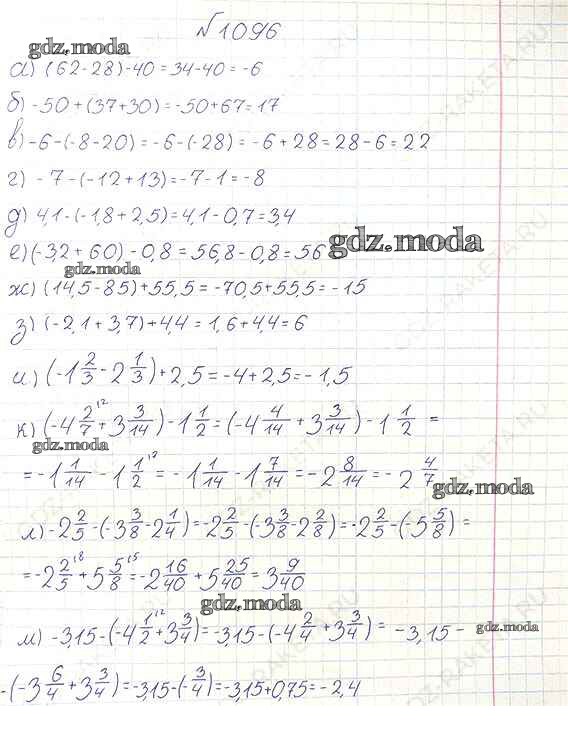 №1096
gdz.moda
а) (62-28)-40=34-40=-6
б) -50+(37+30)=-50+67=17
в) -6-(-8-20)=-6-(-28)=-6+28=28-6=22
г) -7-(-12+13)=-7-1=-8
д) 4,1-(-1,8+2,5)=4,1-0,7=3,4
е) (-3,2+60)-0,8=56,8-0,8=56 gdz.moda
gdz.moda
ж) (14,5-85)+55,5=-70,5+55,5=-15
з) (-2,1+3,7)+4,4=1,6+4,4=6
и) (-1 2/3-2 1/3)+2,5=-4+2,5=-1,5
к) (-4 2/7 \2+3 3/14)-1 1/2=(-4 4/14+3 3/14)-1 1/2=
gdz.moda
=-1 1/14-1 1/2 \7=-1 1/14-1 7/14=-2 8/14=-2 4/7
gdz.moda
л) -2 2/5-(-3 3/8-2 1/4)=-2 2/5-(-3 3/8-2 2/8)=-2 2/5-(-5 5/8)=
=-2 2/5 \8+5 5/8 \5=-2 16/40+5 25/40=3 9/40
gdz.moda
м) -3,15-(-4 1/2 \2+3 3/4)=-3,15-(-4 2/4+3 3/4)=-3,15- gdz.moda
-(-3 6/4+3 3/4)=-3,15-(-3/4)=-3,15+0,75=-2,4